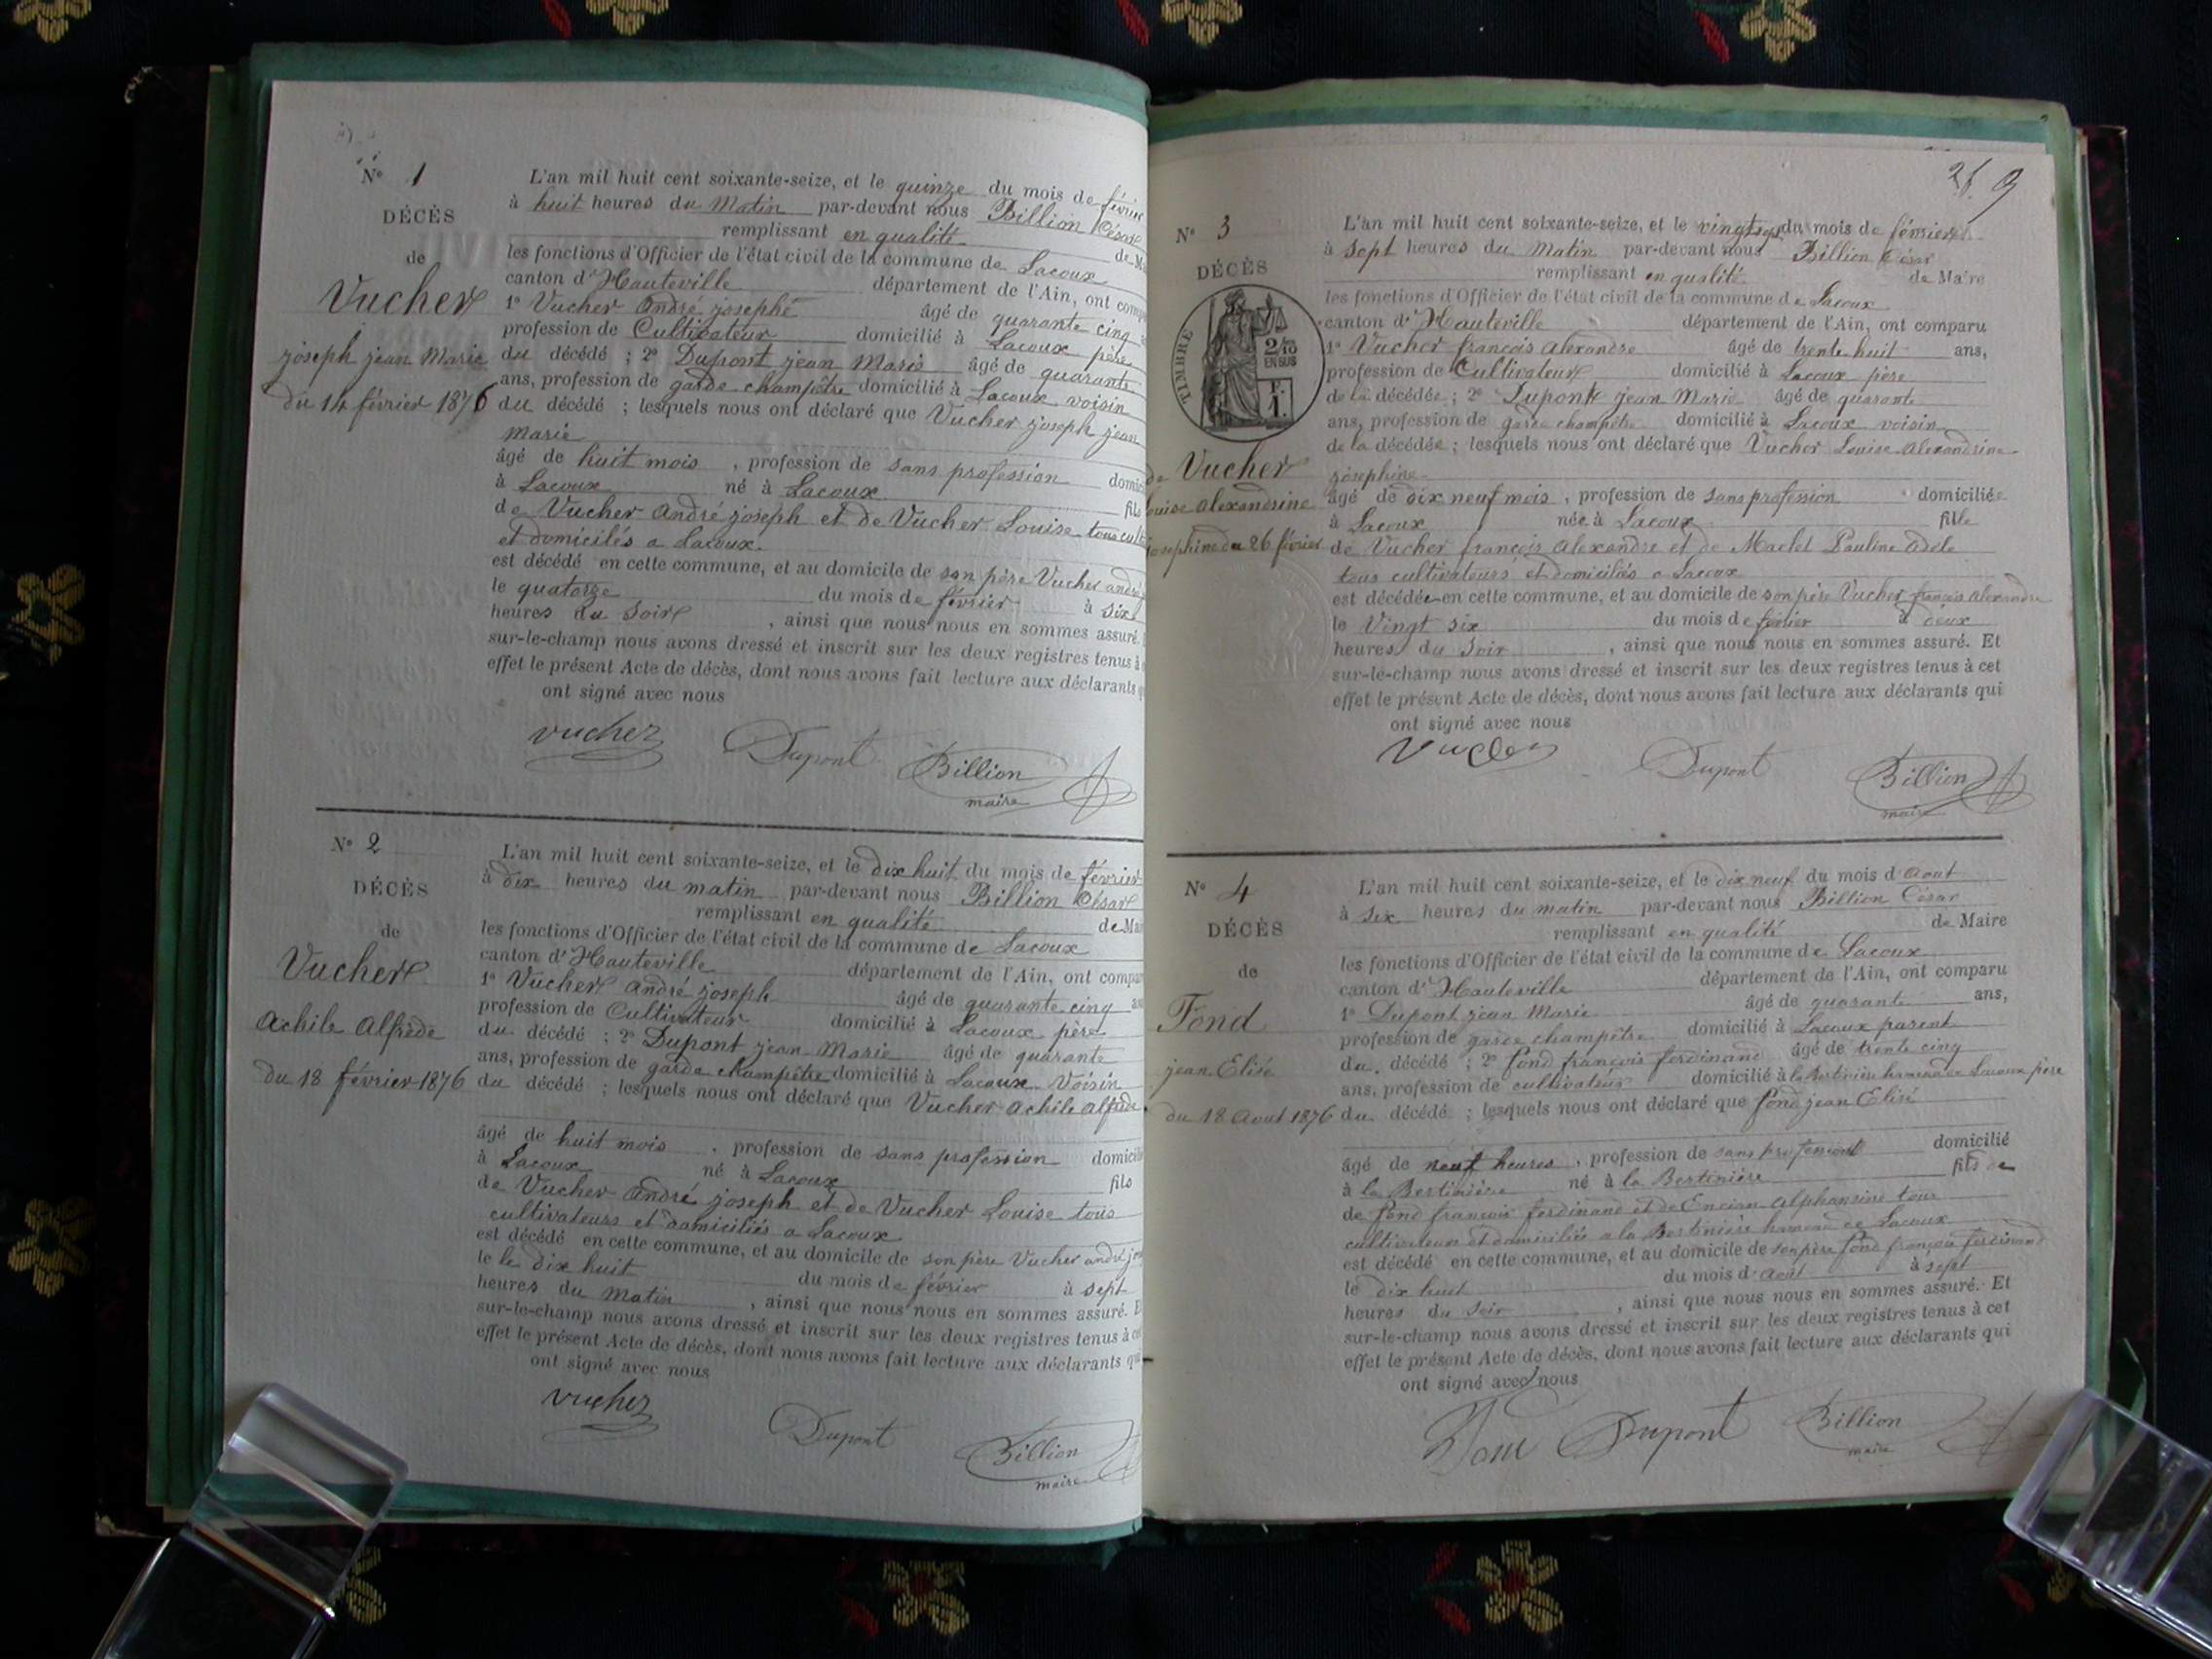 N° 1
DÉCÈS
de
Vucher
joseph jean Marie
du 14 février 1876
L'an mil huit cent soixante-seize, et le quinze du mois de février
à huit heures du Matin par-devant nous Billion César
remplissant en qualité de Ma
les fonctions d'Officier de l'état civil de la commune de Lacoux
canton d'Hauteville département de l'Ain, ont comp
1° Vucher André josephe âgé de quarante cinq
profession de Cultivateur domicilié à Lacoux père
du décédé ; 2° Dupont jean Marie âgé de quarante
ans, profession de garde champêtre domicilié à Lacoux voisin
du décédé ; lesquels nous ont déclaré que Vucher joseph jean
marie
âgé de huit mois , profession de sans profession domici
à Lacoux né à Lacoux fils
de Vucher André joseph et de Vucher Louise tous cult
et domiciliés a Lacoux.
est décédé en cette commune, et au domicile de son père Vucher andré
le quatorze du mois de février à six
heures du Soir , ainsi que nous nous en sommes assuré.
sur-le-champ nous avons dressé et inscrit sur les deux registres tenus à
effet le présent Acte de décès, dont nous avons fait lecture aux déclarants q
ont signé avec nous
vucher Dupont Billion
maire
N° 2
DÉCÈS
de
Vucher
Achile Alfrède
du 18 février 1876
L'an mil huit cent soixante-seize, et le dix huit du mois de février
à dix heures du matin par-devant nous Billion César
remplissant en qualité de Mai
les fonctions d'Officier de l'état civil de la commune de Lacoux
canton d'Hauteville département de l'Ain, ont compar
1° Vucher André joseph âgé de quarante cinq an
profession de Cultivateur domicilié à Lacoux père
du décédé ; 2° Dupont jean Marie âgé de quarante
ans, profession de garde champêtre domicilié à Lacoux Voisin
du décédé ; lesquels nous ont déclaré que Vucher Achile Alfrède
âgé de huit mois , profession de sans profession domicilié
à Lacoux né à Lacoux fils
de Vucher André joseph et de Vucher Louise tous
cultivateurs et domiciliés a Lacoux
est décédé en cette commune, et au domicile de son père Vucher andré jo
le le dix huit du mois de février à sept
heures du matin , ainsi que nous nous en sommes assuré. E
sur-le-champ nous avons dressé et inscrit sur les deux registres tenus à cet
effet le présent Acte de décès, dont nous avons fait lecture aux déclarants qu
ont signé avec nous
vucher Dupont Billion
maire
9
N° 3
DÉCÈS
TIMBRE
2/10
EN SUS
F.
1.
de Vucher
ouise Alexandrine
josephine du 26 février
L'an mil huit cent soixante-seize, et le vingt sept du mois de février
à sept heures du matin par-devant nous Billion César
remplissant en qualité de Maire
les fonctions d'Officier de l'état civil de la commune de Lacoux
canton d'Hauteville département de l'Ain, ont comparu
1° Vucher françois Alexandre âgé de trente huit ans,
profession de Cultivateur domicilié à Lacoux père
de la décédée ; 2° Dupont jean Marie âgé de quarante
ans, profession de garde champêtre domicilié à Lacoux voisin
de la décédée ; lesquels nous ont déclaré que Vucher Louise Alexandrine
josephine
âgé de dix neuf mois , profession de sans profession domiciliée
à Lacoux née à Lacoux fille
de Vucher françois Alexandre et de Maclet Pauline Adèle
tous cultivateurs et domiciliés a Lacoux
est décédée en cette commune, et au domicile de son père Vucher françois Alexandre
le Vingt six du mois de février à deux
heures du Soir , ainsi que nous nous en sommes assuré. Et
sur-le-champ nous avons dressé et inscrit sur les deux registres tenus à cet
effet le présent Acte de décès, dont nous avons fait lecture aux déclarants qui
ont signé avec nous
Vucher Dupont Billion
maire
N° 4
DÉCÈS
de
Fond
jean Elisé
du 18 Aout 1876
L'an mil huit cent soixante-seize, et le dix neuf du mois d'Aout
à six heures du matin par-devant nous Billion César
remplissant en qualité de Maire
les fonctions d'Officier de l'état civil de la commune de Lacoux
canton d'Hauteville département de l'Ain, ont comparu
1° Dupont jean Marie âgé de quarante ans,
profession de garde champêtre domicilié à Lacoux parent
du décédé ; 2° fond françois ferdinand âgé de trente cinq
ans, profession de cultivateur domicilié à la Bertinière hameau de Lacoux père
du décédé ; lesquels nous ont déclaré que fond jean Elisé
âgé de neuf heures , profession de sans profession domicilié
à la Bertinière né à la Bertinière fils de
de fond françois ferdinand et de Encian Alphonsine tous
cultivateurs et domiciliés a la Bertinière hameau de Lacoux
est décédé en cette commune, et au domicile de son père fond françois ferdinand
le dix huit du mois d'Aout à sept
heures du soir , ainsi que nous nous en sommes assuré. Et
sur-le-champ nous avons dressé et inscrit sur les deux registres tenus à cet
effet le présent Acte de décès, dont nous avons fait lecture aux déclarants qui
ont signé avec nous
Fond Dupont Billion
maire